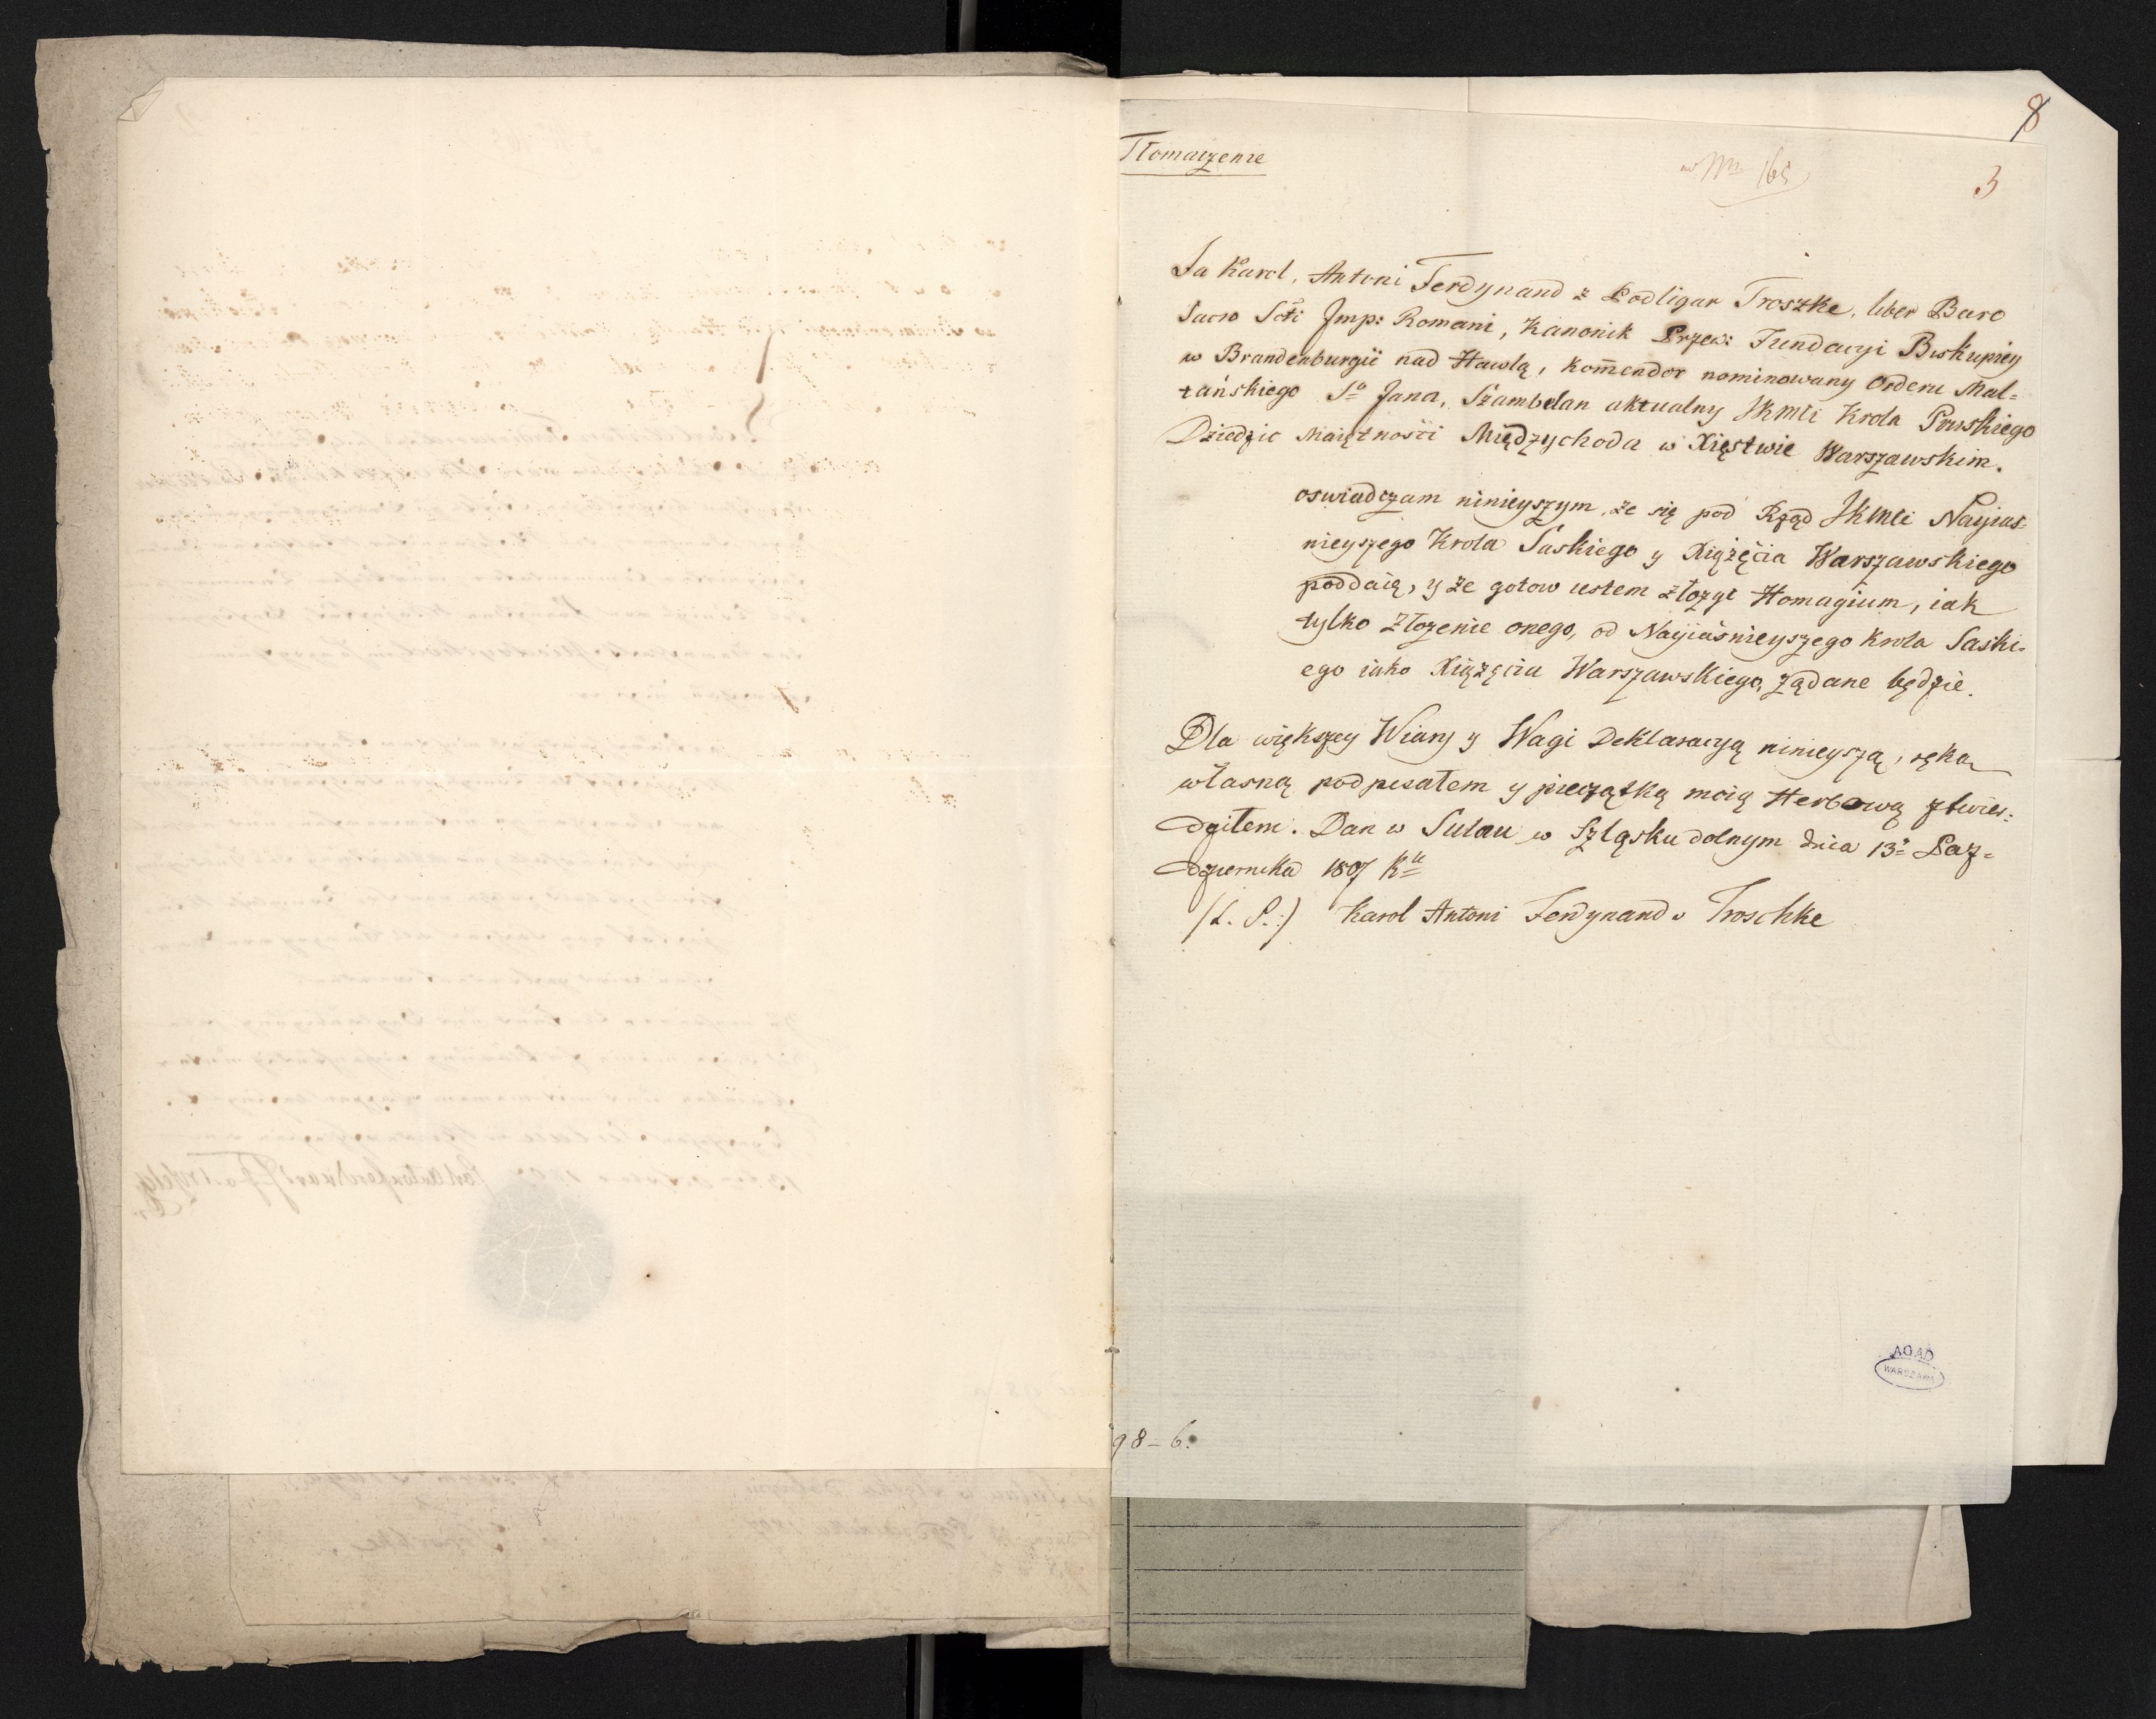 8
Tłomaczenie
w Nrn 165
3
Ja Karol, Antoni Ferdynand z Podligar Troszke, liber Baro
Sacro Scti Imp: Romani, Kanonik Przew: Fundacyi Biskupiey
w Brandenburgii nad Hawlą, Kommendor nominowany Orderu Mal=
tańskiego So Jana, Szambelan aktualny JKMci Krola Pruskiego
Dziedzic Maiętności Międzychoda w Xięstwie Warszawskim.
oswiadczam ninieyszym, że się pod Rząd JKMci Nayias=
nieyszego Krola Saskiego y Xiążęcia Warszawskiego
poddaię, y że gotow iestem złożyć Homagium, iak
tylko Złożenie onego, od Nayiaśnieyszego Krola Saski=
ego iako Xiążęcia Warszawskiego, żądane będzie.
Dla większey Wiary y Wagi Deklaracyą ninieyszą, ręką
własną podpisałem y pieczątką moią Herbową ztwier=
dziłem. Dan w Sulau w Szląsku dolnym dnia 13o Paz=
dziernika 1807 Ru
(L. S.:) Karol Antoni Ferdynand v Troschke
AGAD
WARSZAWA
98-6.